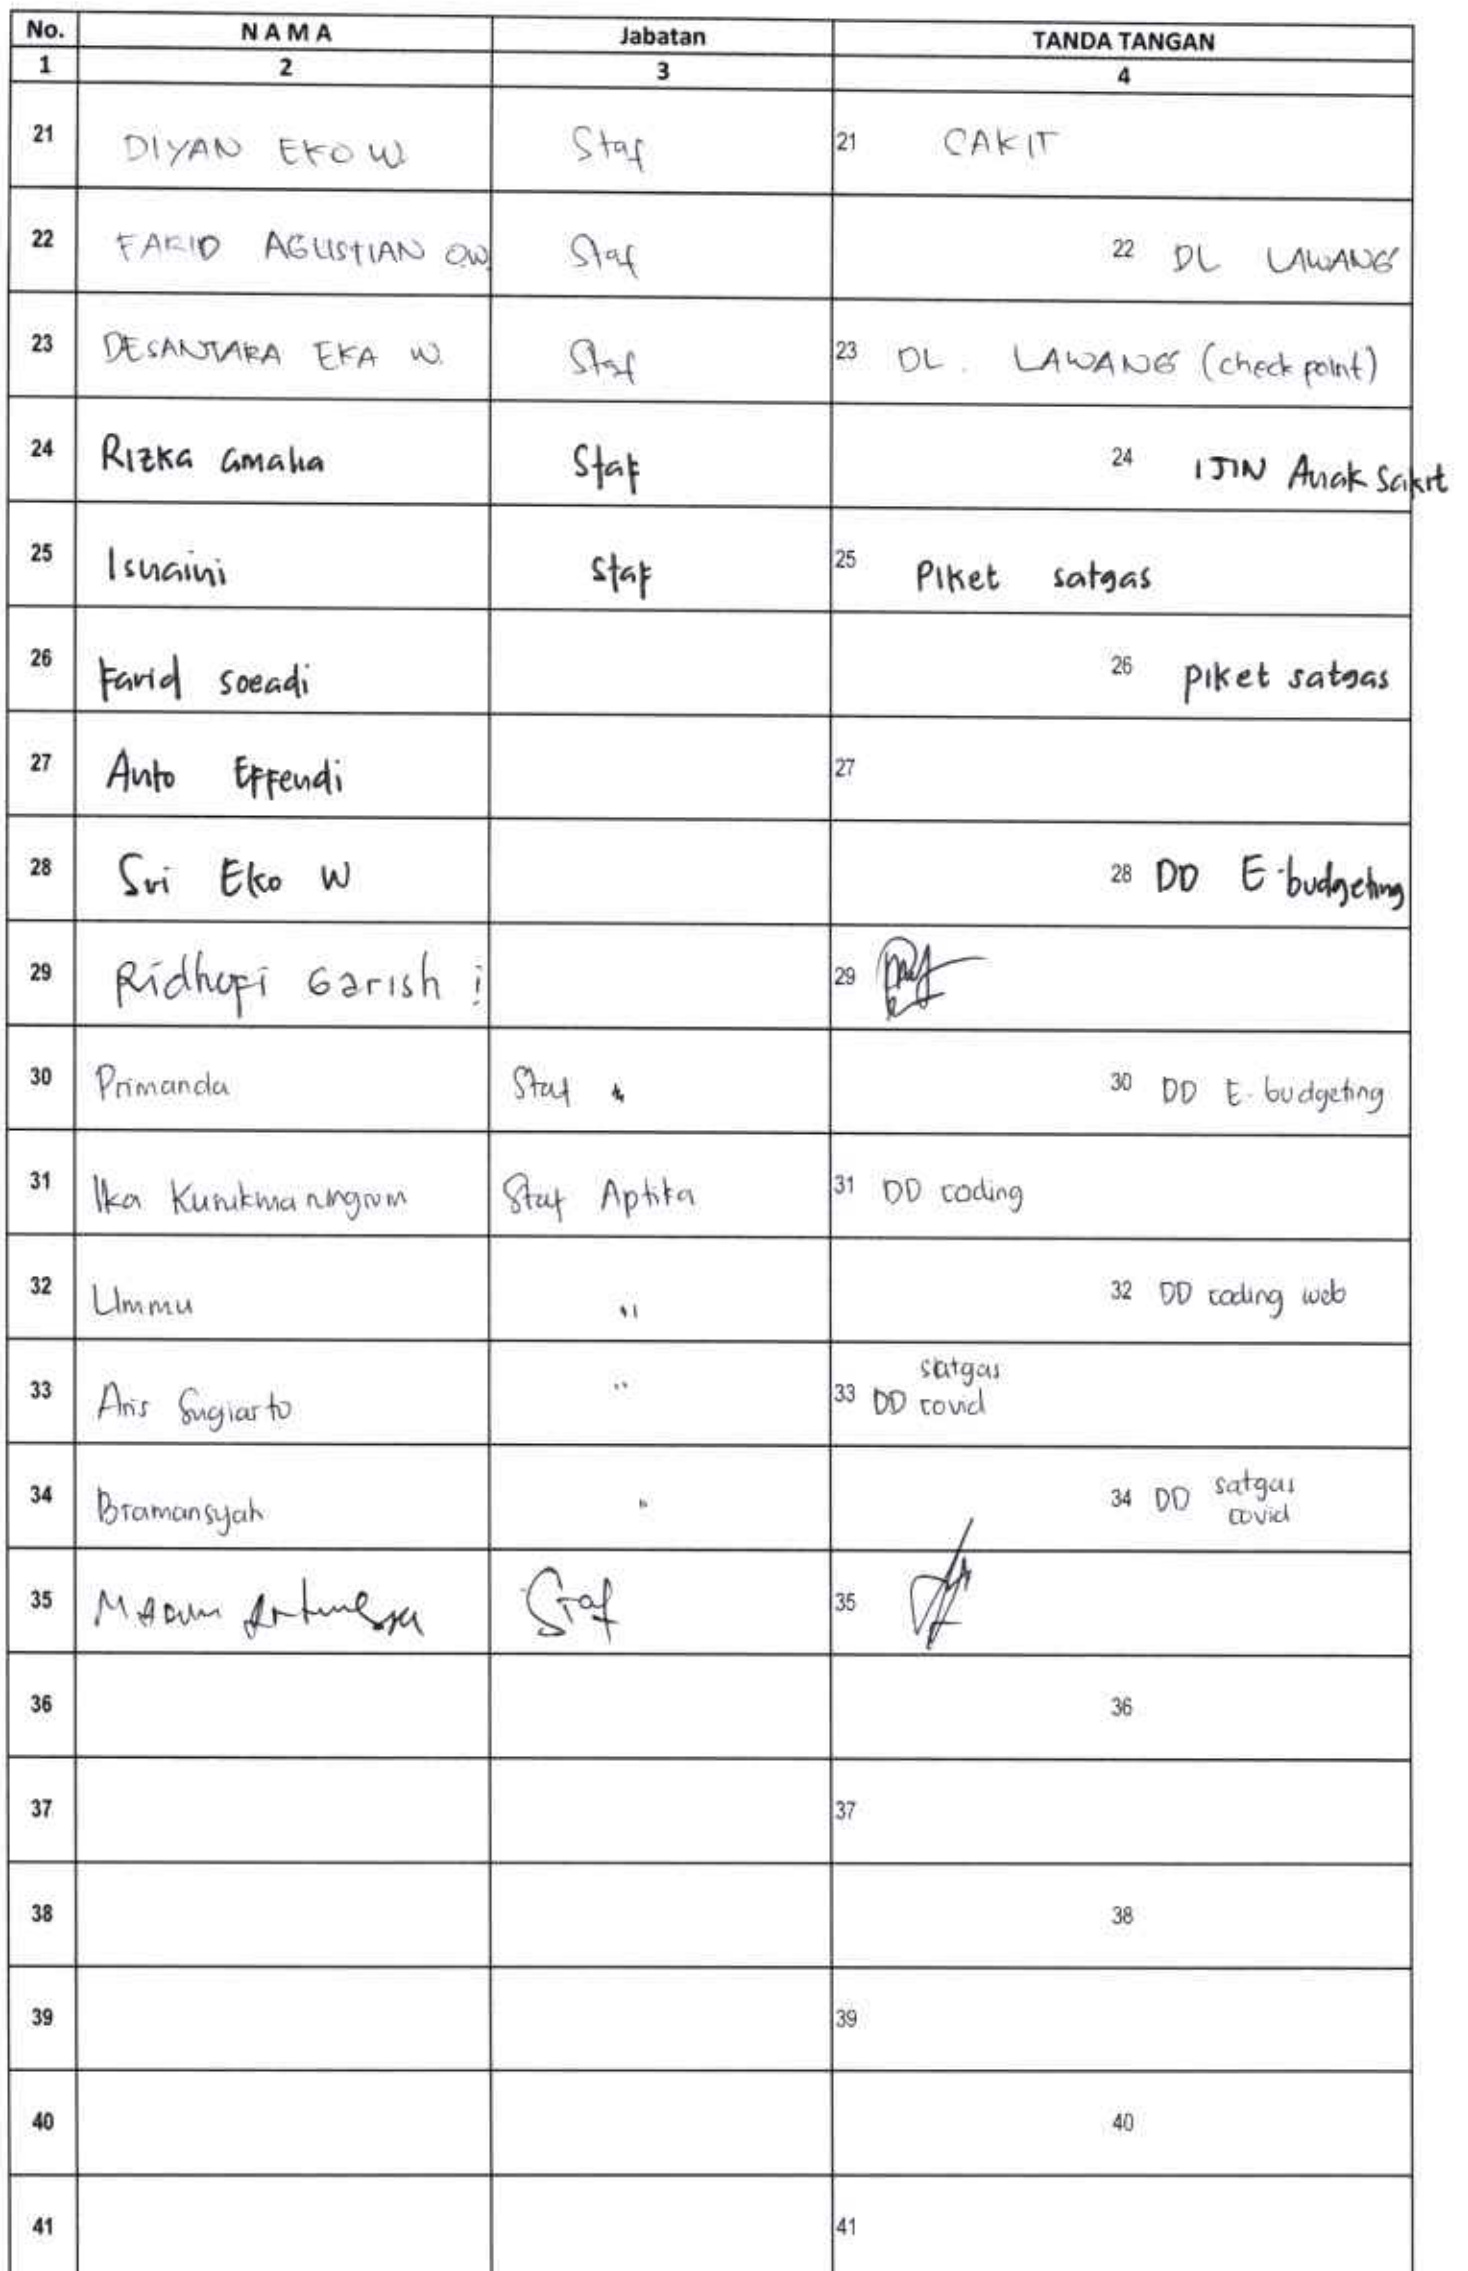 No. NAMA Jabatan TANDA TANGAN
1 2 3 4
21 DIYAN EKO W. Staf 21 CAKIT
22 FARID AGUSTIAN O.W. Staf 22 DL LAWANG
23 DESANTARA EKA W. Staf 23 DL. LAWANG (check point)
24 Rizka amalia Staf 24 IJIN Anak Sakit
25 Isnaini Staf 25 Piket satgas
26 Farid soeadi 26 piket satgas
27 Anto Effendi 27
28 Sri Eko W 28 DD E-budgeting
29 Ridhofi Garish i 29
30 Primanda Staf 30 DD E-budgeting
31 Ika Staf Aptika 31 DD coding
32 Ummu " 32 DD coding web
33 Aris Sugiarto " 33 DD satgas covid
34 Bramansyah " 34 DD satgas covid
35 Staf 35
36 36
37 37
38 38
39 39
40 40
41 41